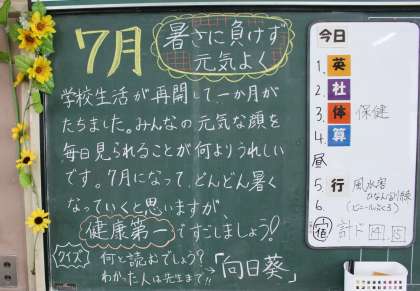 7月
暑さに負けず
元気よく
学校生活が再開して、一か月が
たちました。みんなの元気な顔を
毎日見られることが何よりうれしい
です。7月になって、どんどん暑く
なっていくと思いますが、
健康第一ですごしましょう!
クイズ
何と読むおでしょう?
わかった人は先生まで→
「向日葵」
今日
1. 英
2. 社
3. 体 保健
4. 算
昼
5 行 風水害
ひなん訓練
6. (ビニールぶくろ)
宿 計ド